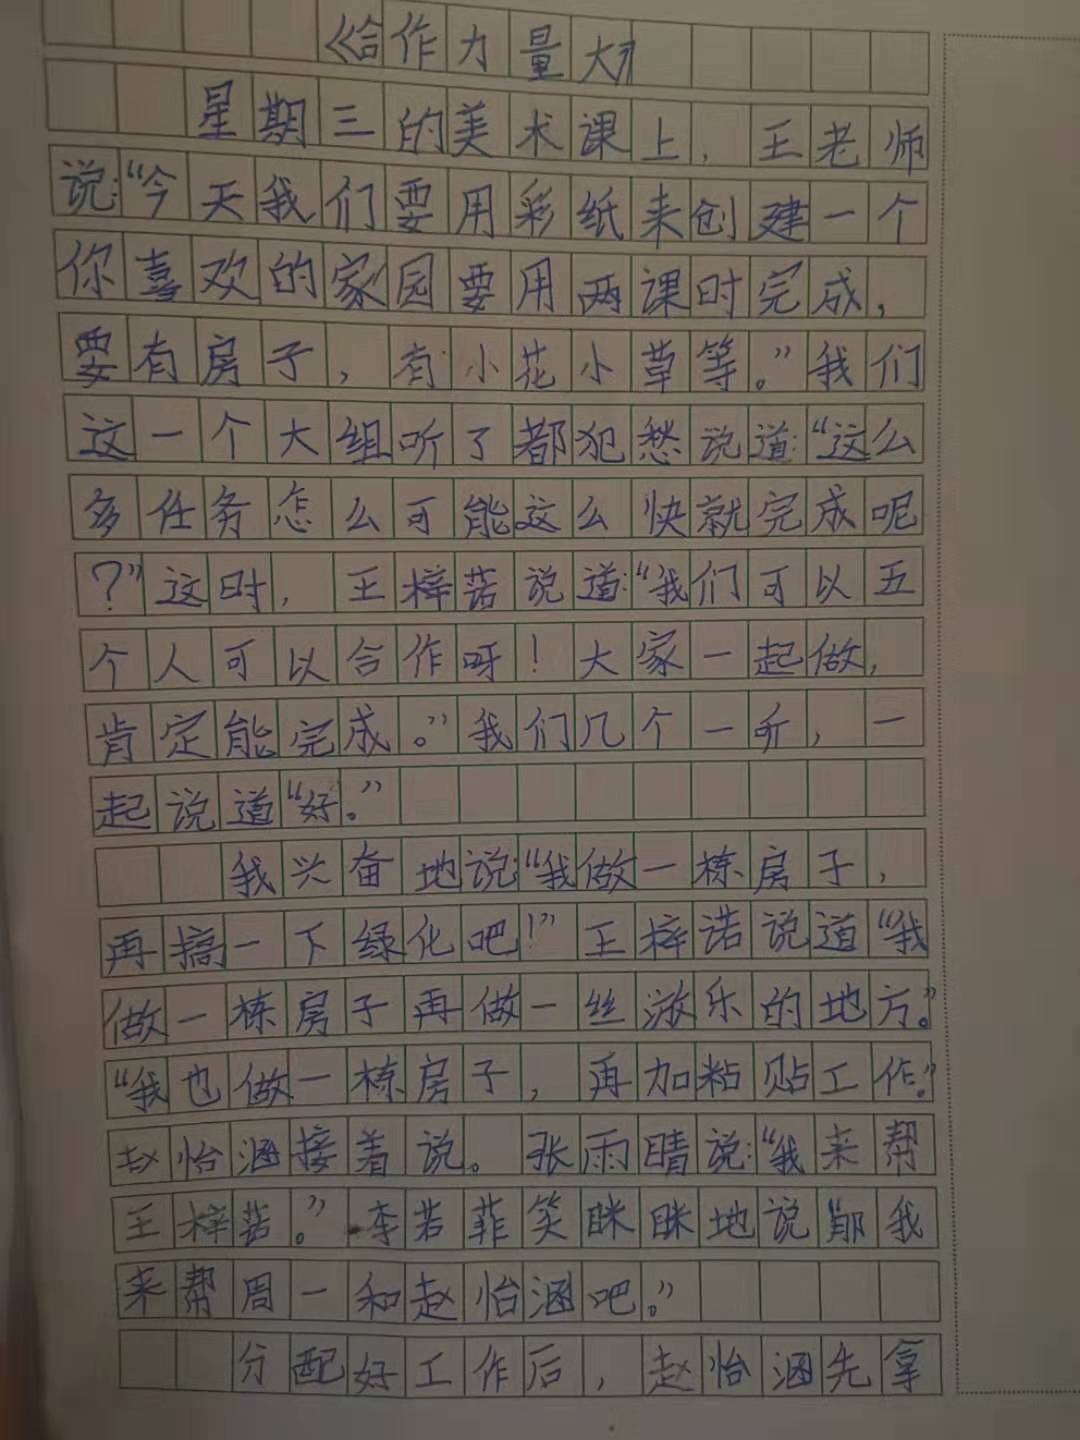 《合作力量大》
星期三的美术课上，王老师
说:“今天我们要用彩纸来创建一个
你喜欢的家园要用两课时完成，
要有房子，有小花小草等。”我们
这一个大组听了都犯愁说道:“这么
多任务怎么可能这么快就完成呢
?”这时，王梓諾说道:“我们可以五
个人可以合作呀！大家一起做，
肯定能完成。”我们几个一听，一
起说道“好。”
我兴奋地说:“我做一栋房子，
再搞一下绿化吧!”王梓诺说道“我
做一栋房子再做一丝游乐的地方。”
“我也做一栋房子，再加粘贴工作。”
赵怡涵接着说。张雨晴说:“我来帮
王梓諾。”李若菲笑眯眯地说“那我
来帮周一和赵怡涵吧。”
分配好工作后，赵怡涵先拿